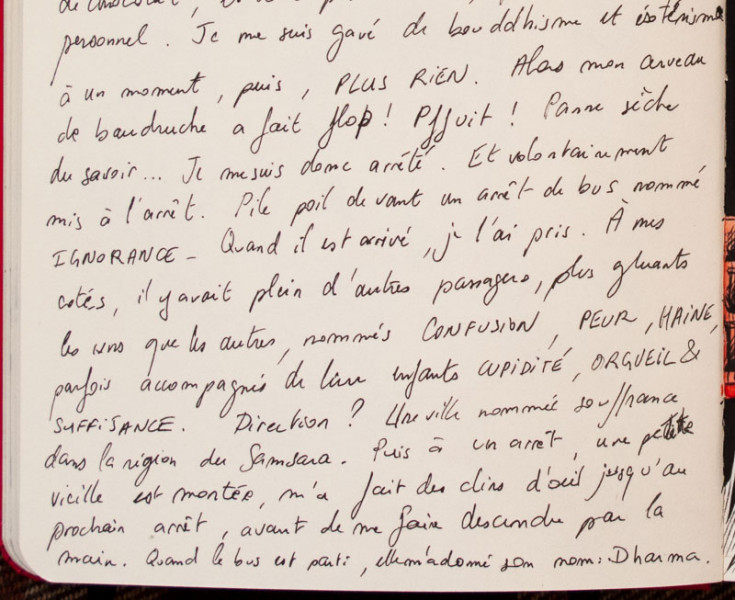 de chocolat,
personnel. Je me suis gavé de bouddhisme et ésotérisme
à un moment, puis, PLUS RIEN. Alors mon cerveau
de baudruche a fait flop! Pffuit! Panne sèche
du savoir... Je me suis donc arrêté. Et volontairement
mis à l'arrêt. Pile poil devant un arrêt de bus nommé
IGNORANCE - Quand il est arrivé, je l'ai pris. À mes
côtés, il y avait plein d'autres passagers, plus gluants
les uns que les autres, nommés CONFUSION, PEUR, HAINE,
parfois accompagnés de leur enfants CUPIDITÉ, ORGUEIL &
SUFFISANCE. Direction? Une ville nommée souffrance
dans la région du Samsara. Puis à un arrêt, une petite
vieille est montée, m'a fait des clins d'œil jusqu'au
prochain arrêt, avant de me faire descendre par la
main. Quand le bus est parti, elle m'a donné son nom: Dharma.